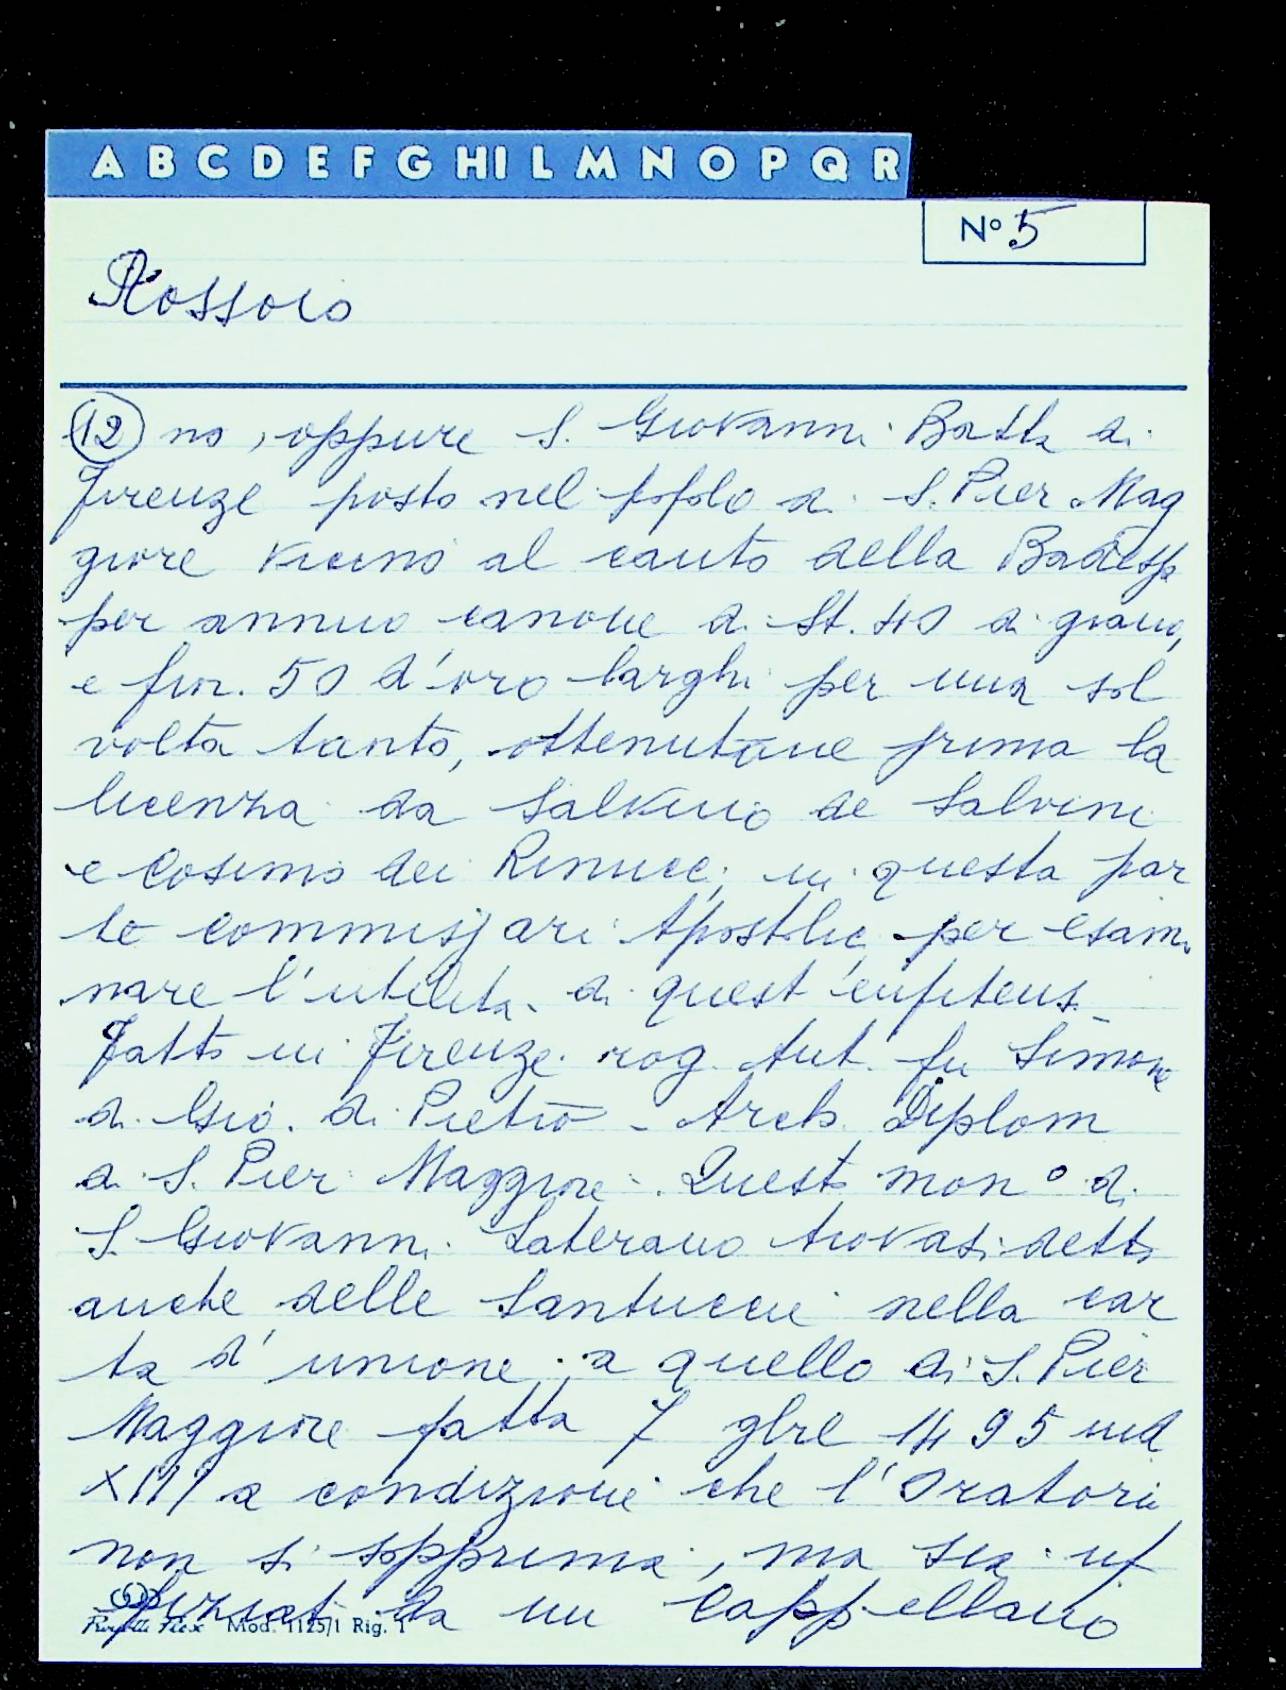 A B C D E F G H I L M N O P Q R
Nº 5
Rossoio
12 no, oppure S. Giovanni Batta di
Firenze posto nel popolo di S. Pier Mag
giore vicino al canto della Badess
per annuo canone di St. 40 di grano,
e fior. 50 d'oro larghi per una sol
volta tanto, ottenutone prima la
licenza da Salvino de Salvini
e Cosimo dei Rinucci, in questa par
te commissari Apostolici per esami
nare l'utilità di quest'enfiteusi
Fatto in Firenze rog. Ant. fu Simone
di Gio. di Pietro - Arch. Diplom
di S. Pier Maggiore. Questo monº di
S. Giovanni Laterano trovasi detto
anche delle Santucce nella car
ta d'unione a quello di S. Pier
Maggiore fatta 7 9bre 1495 ind
XIII a condizione che l'Oratorio
non si sopprima, ma sia uf
fiziato da un Cappellano
Mod. 1125/1 Rig. 1